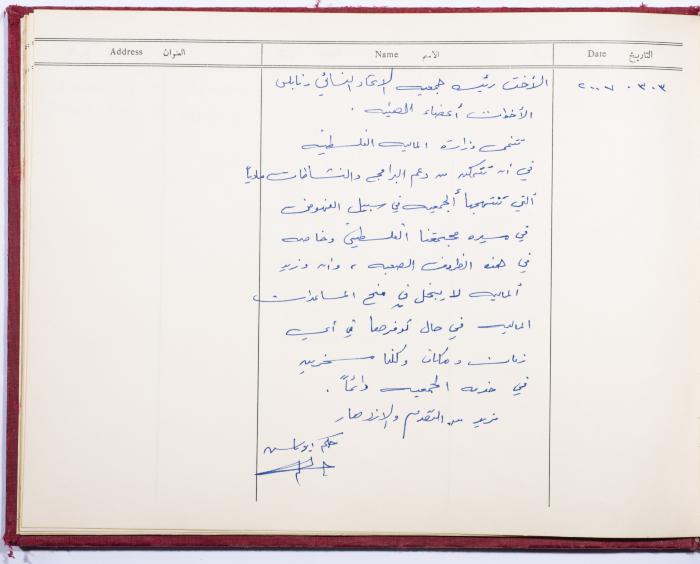 Address العنوان Name الاسم Date التاريخ
٢٠٠٧.٣.٣
الأخت رئيسة جمعية الاتحاد النسائي نابلس
الأخوات أعضاء الهيئة .
تتمنى وزارة المالية الفلسطينية
في أن تتمكن من دعم البرامج والنشاطات مادياً
التي تنتهجها الجمعية في سبيل النهوض
في مسيرة مجتمعنا الفلسطيني وخاصة
في هذه الظروف الصعبة ، وان وزير
المالية لا يبخل في منح المساعدات
المالية في حال توفرها في أي
زمان ومكان وكلنا مسخرين
في خدمة الجمعية دائماً .
مزيد من التقدم والازدهار